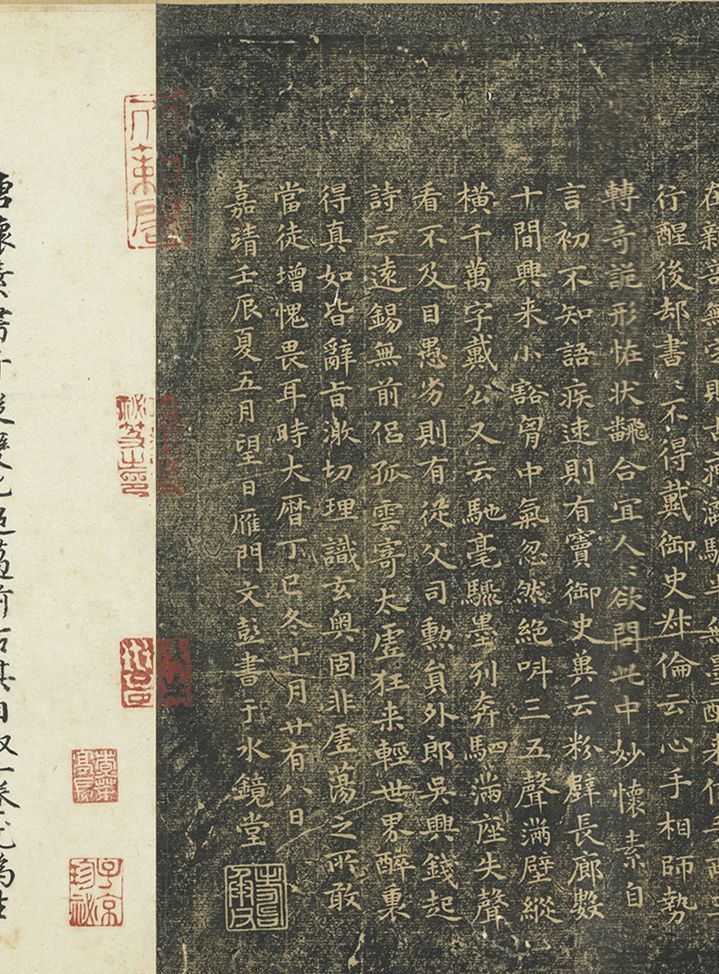 在新奇無定則古瘦灕驪半無墨醉来信手兩三
行醒後却書〻不得戴御史叔倫云心手相師勢
轉奇詭形恠狀飜合宜人〻欲問此中妙懷素自
言初不知語疾速則有竇御史兾云粉壁長廊數
十間興来小豁胷中氣忽然絕叫三五聲滿壁縱
橫千萬字戴公又云馳毫驟墨列奔駟滿座失聲
看不及目愚劣則有從父司勲員外郎吳興錢起
詩云遠錫無前侶孤雲寄太虛狂来輕世界醉裏
得真如皆辭旨激切理識玄奧固非虛蕩之所敢
當徒增愧畏耳時大曆丁巳冬十月廿有八日
嘉靖壬辰夏五月望日雁門文彭書于水鏡堂
子京珍秘
唐懷素書前古其自叙一卷尤為世